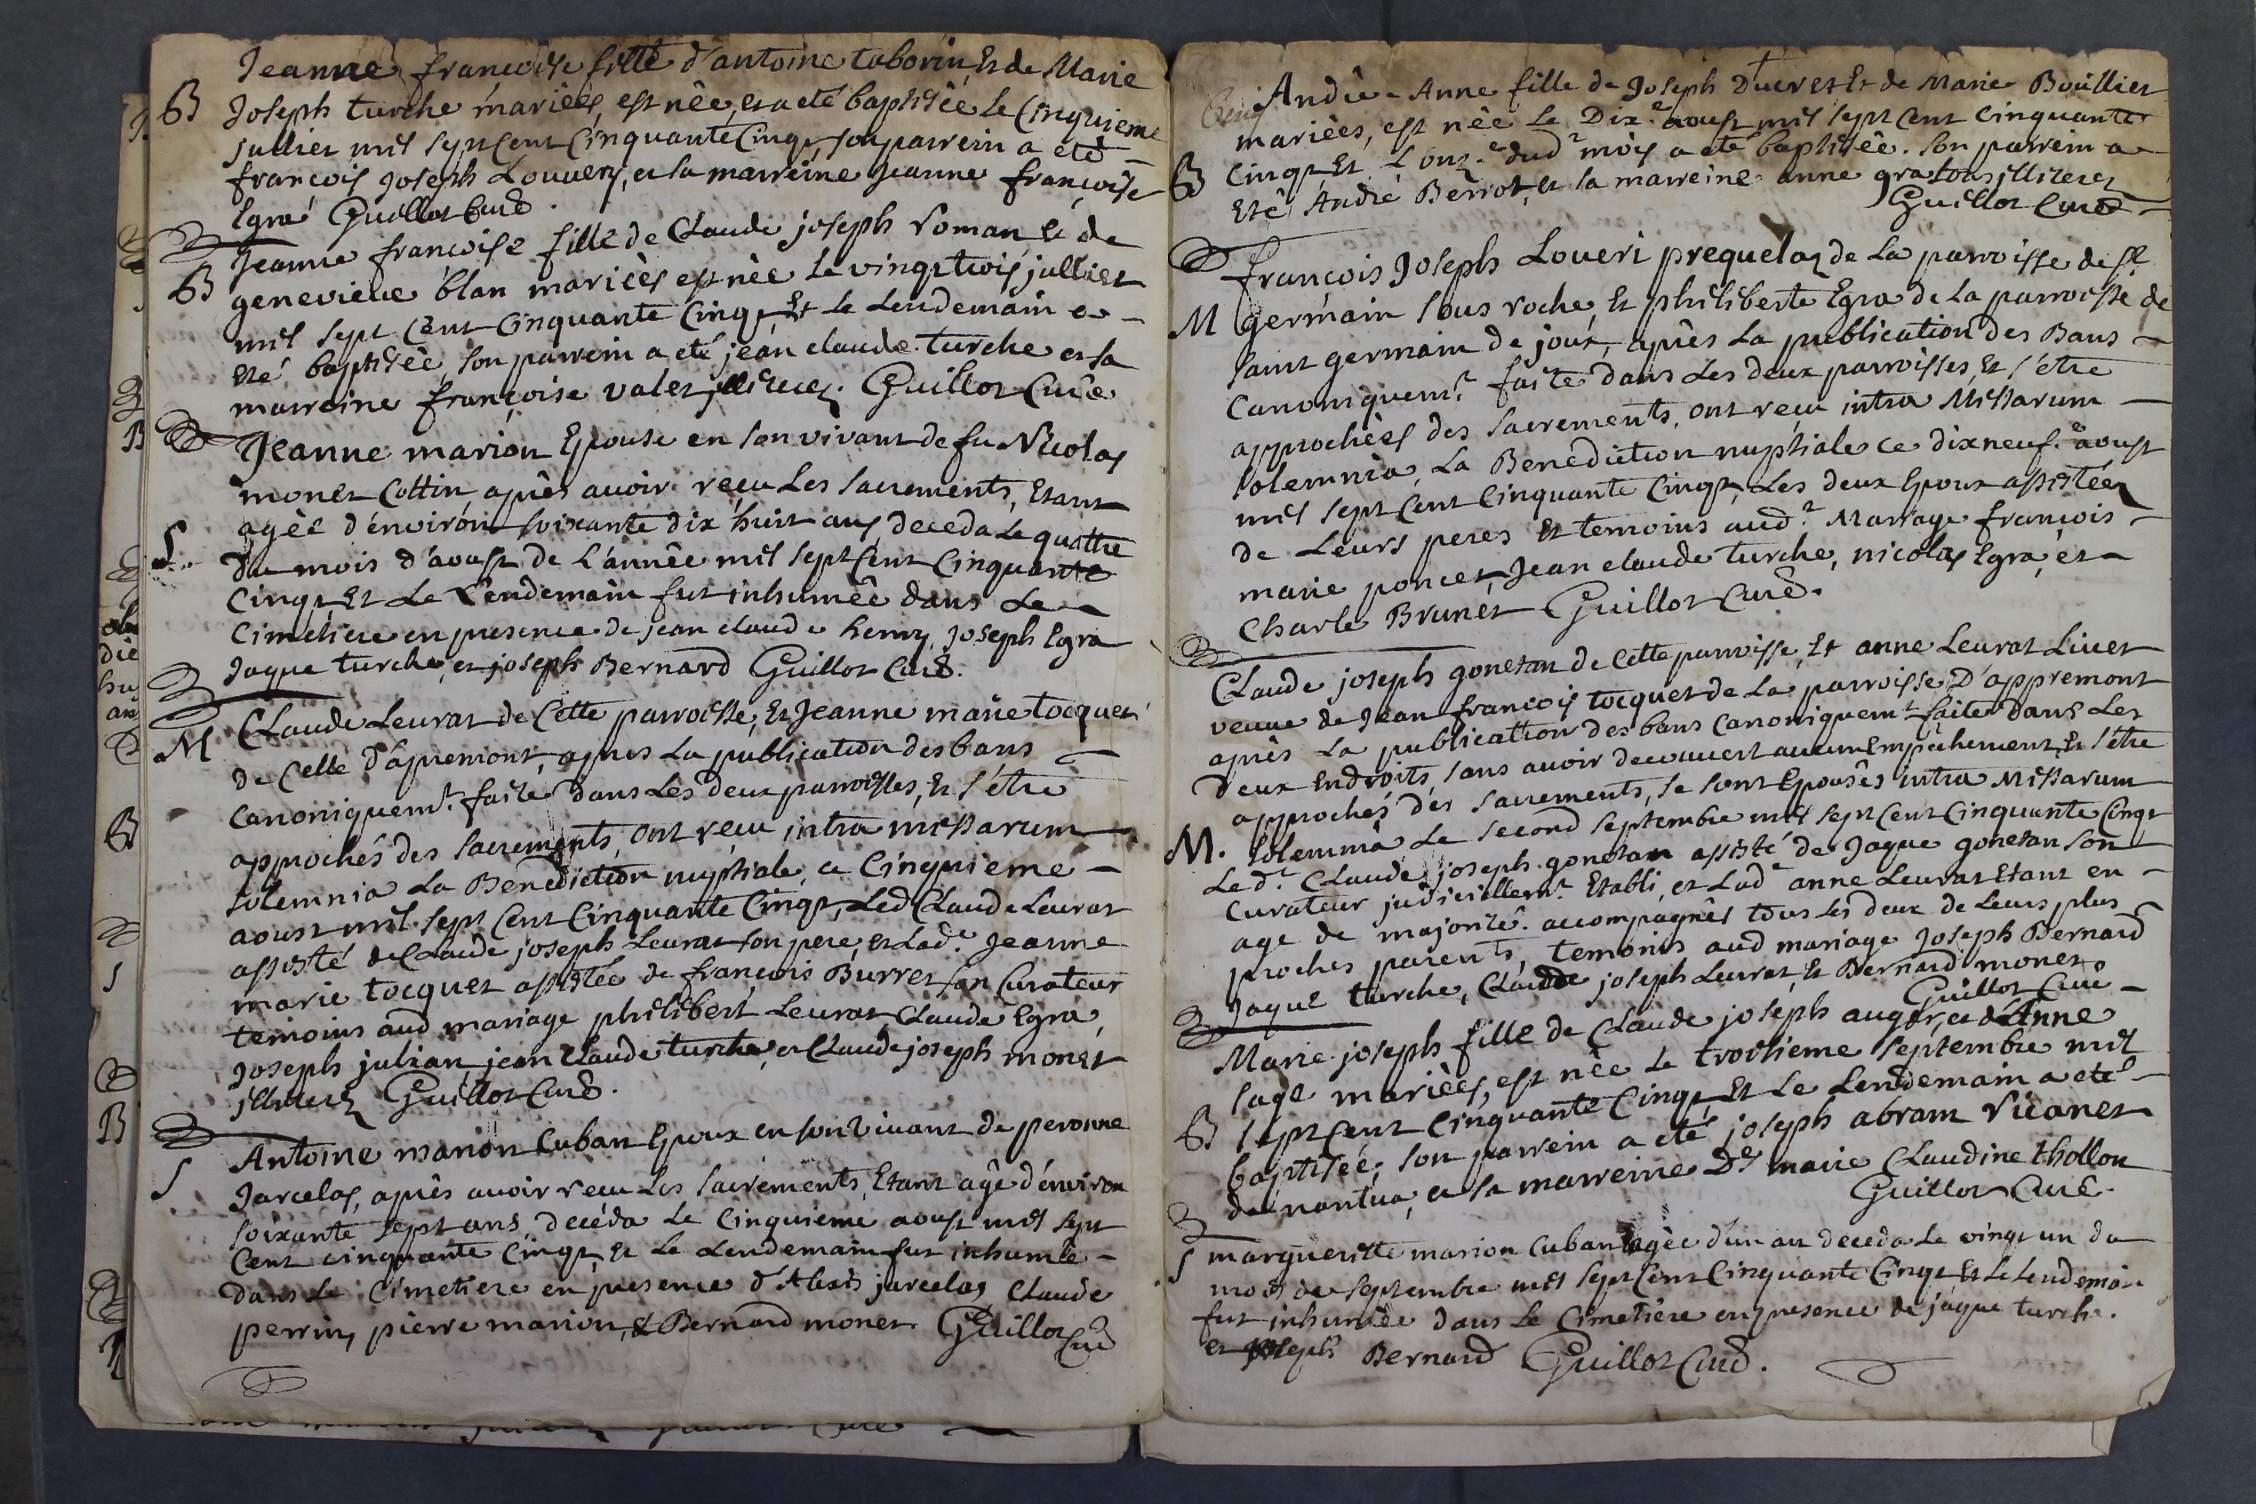 Jeanne françoise fille d'antoine taborin, Et de Marie
B Joseph turche mariées, est née, et a eté baptisée le Cinquieme
jullier mil sept Cent Cinquante Cinqt, son parrein a eté
françois joseph Louvery, et la marreine Jeanne françoise
Egra Guillot Curé.
Jeanne françoise fille de Claude joseph Roman et de
B genevieve blan mariées est née le vingt trois jullier
mil sept Cent Cinquante Cinqt Et le Lendemain a
Eté baptisée, son parrein a eté jean claude turche et sa
marreine françoise valet jlliterez. Guillot Curé
Jeanne marion Epouse en son vivant de fu Nicolas
monet Cottin, après avoir reçu Les sacrements, Etant
agée d'environ soixante dix huit ans, deceda Le quattre
S. Du mois d'aoust de L'année mil sept Cent Cinquante
Cinqt Et Le Lendemain fut inhumée dans Le
Cimetiere en presence de jean claude henry, joseph Egra
Jaque turche, et joseph Bernard Guillot Curé.
M Claude Leurat de Cette parroisse, Et Jeanne marie tocquet
de Celle d'apremont, apres La publication des bans
Canoniquemt. faite Dans Les deux parroisses, Et s'être
approchés des sacrements, ont reçu intra missarum
solemnia La Benediction nuptiale, ce Cinquieme
aoust mil sept Cent Cinquante Cinqt, Led Claude Leurat
assisté de Claude joseph Leurat son pere, et Lade. Jeanne
marie tocquet assistée de françois Burret son Curateur
temoins aud mariage philibert Leurat, Claude Egra,
Joseph julian, jean Claude turche, et Claude joseph monet
jlliterez Guillot Curé.
Antoine marion Cuban Epoux en son vivant de peronne
S Jarcelas, après avoir reçu Les sacrements, Etant agé d'environ
soixante sept ans, decéda Le Cinquieme aoust mil sept
Cent cinquante Cinqt, Et Le Lendemain fut inhumé
Dans Le Cimetiere en presence d'Alexis jarcelas Claude
perrin, pierre marion, & Bernard monet Guillot Curé
Andrée Anne fille de Joseph Ducret Et de Marie Boüllier
mariées, est née Le Dix.e aoust mil sept Cent Cinquante
B Cinqt Et L'onz.e dud.t mois a eté baptisée. Son parrein a
Eté André Berrot, et sa marreine anne gratous jlliterez
Guillot Curé
françois Joseph Loueri prequelaz de La parroisse de St.
M germain sous roche, Et philiberte Egra de La parroisse de
saint germain de joux, après La publication des Bans
Canoniquemt. faite dans Les deux parroisses, Et s'être
approchées des sacrements, ont reçu intra Missarum
solemnia La Benediction nuptiale ce dixneuf.e aoust
mil sept Cent Cinquante Cinqt, Les deux Epoux assistées
de Leurs peres Et temoins aud.t Mariage françois
marie poncet, Jean claude turche, nicolas Egra, et
Charle Brunet Guillot Curé.
Claude joseph gonetan de Cette parroisse, Et anne Leurat Livet
veuve de Jean françois tocquet de La parroisse D'appremont
après La publication des bans Canoniquemt. faite dans Les
Deux Endroits, sans avoir decouvert aucun Empêchement, Et s'être
approchés des sacrements, se sont Epousés intra Missarum
M. solemnia Le second septembre mil sept Cent Cinquante Cinqt
Le d.t Claude joseph gonetan assisté de Jaque gonetan son
Curateur judiciellemt. Etabli, et Lade. anne Leurat Etant en
age de majorité. accompagnés tous Les deux de Leurs plus
proches parents, temoins aud mariage Joseph Bernard
Jaque turche, Claude joseph Leurat, Et Bernard monet.
Guillot Curé
Marie joseph fille de Claude joseph auger, et d'Anne
sage mariées, est née Le troisieme septembre mil
B sept Cent Cinquante Cinqt, Et Le Lendemain a eté
baptisée; son parrein a eté joseph abram Vicanet
de nantua, et sa marreine De. marie Claudine thollon
Guillot Curé.
S margueritte marion Cuban agée d'un an deceda Le vingt un du
mois de septembre mil sept Cent Cinquante Cinqt Et Le Lendemain
fut inhumée dans Le Cimetière en presence de jaque turche.
et joseph Bernard Guillot Curé.